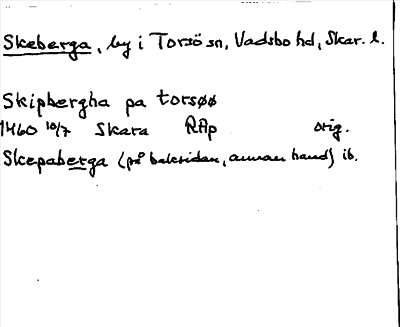 Skeberga, by i Torsö sn, Vadsbo hd, Skar. l.
Skipbergha pa torsøø
1460 10/7 Skara RAp orig.
Skepaberga (på baksidan, annan hand) ib.